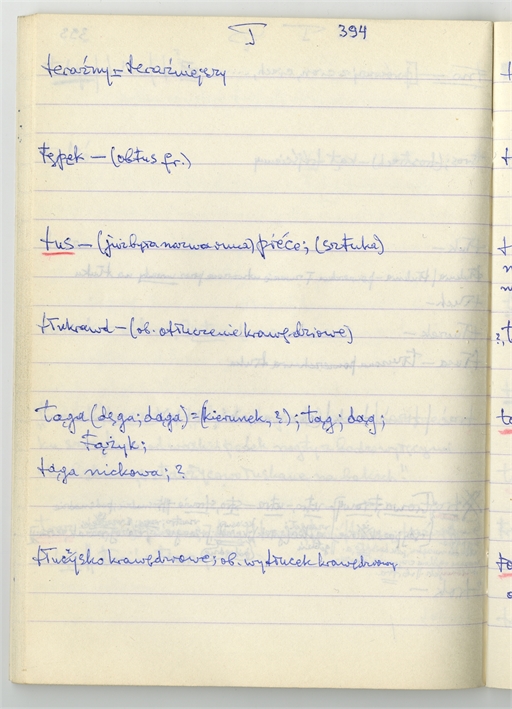 T 394
teraźny = teraźniejszy
tępek – (obtus fr.)
tus – (już była nazwa inna) pièce; (sztuka)
tłukrawd – (ob. otłuczenie krawędziowe)
tąga (dęga; dąga) = (kierunek, ?); tąg; dąg;
tążyk;
tąga nickowa; ?
tłuczysko krawędziowe; ob. wytłucek krawędziowy